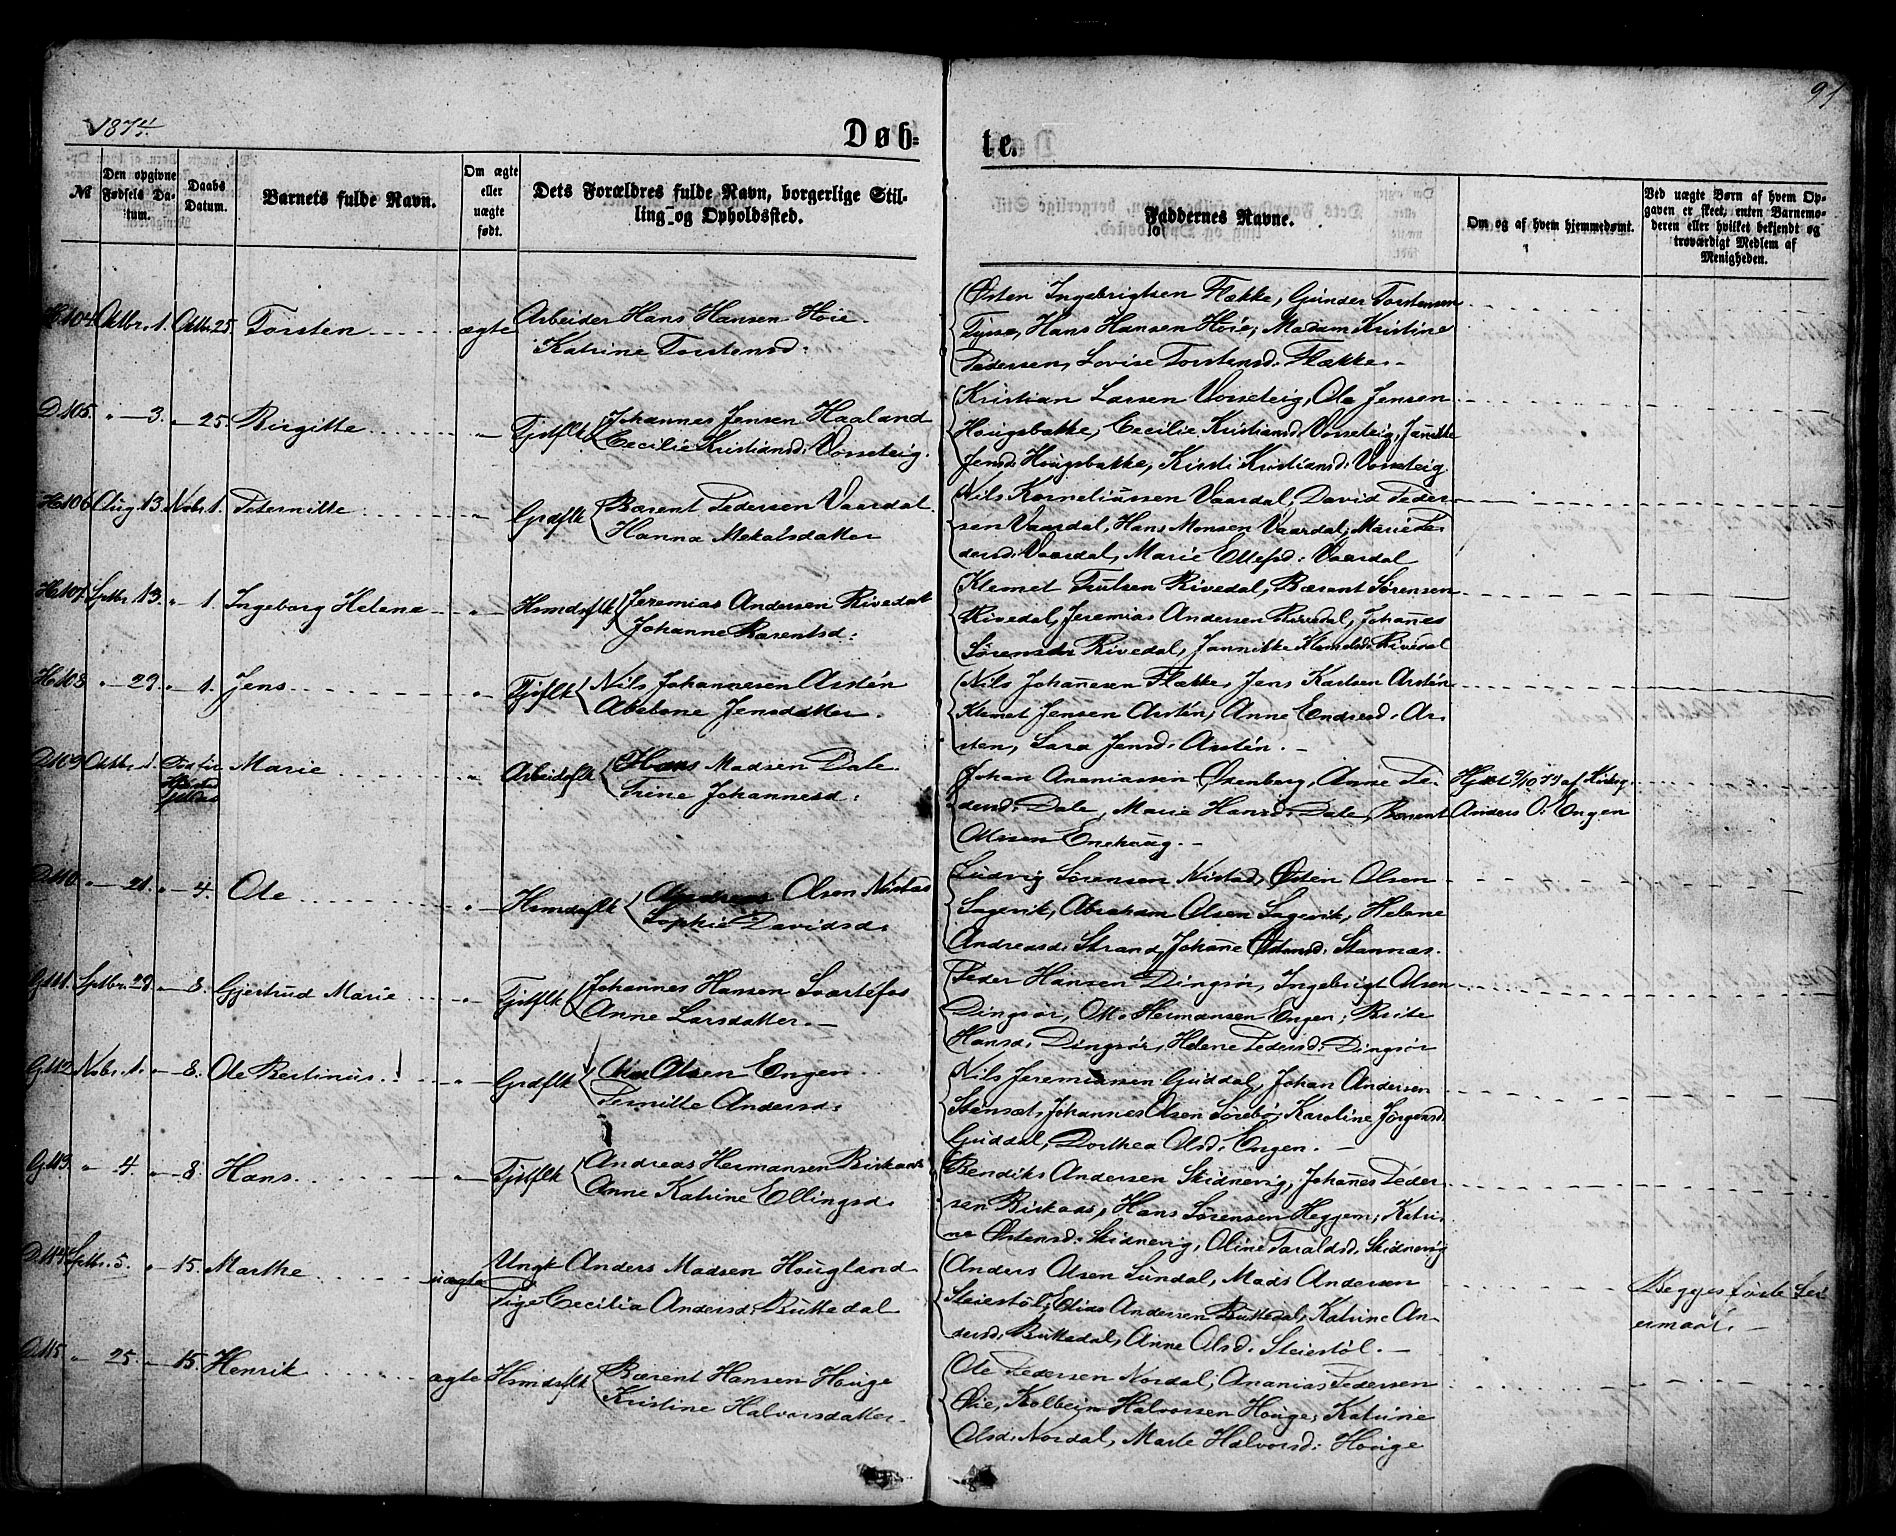 1874.
91
Døb-
te.
№
Den opgivne Fødsels Datum.
Daabs Datum.
Barnets fulde Navn.
Om ægte eller uægte født.
Dets Forældres fulde Navn, borgerlige Stilling og Opholdssted.
Faddernes Navne.
Om og af hvem hjemmedøbt.
Ved uægte Børn af hvem Opgaven er skeet, enten Barnemoderen eller hvilket bekjendt og troværdigt Medlem af Menigheden.
H 104. Oktbr. 1. Oktbr. 25. Torsten ægte Arbeider Hans Hansen Høie
Katrine Torstensd:
Østen Ingebrigtsen Flække, Gunder Torstensen
Tysse, Hans Hansen Høie, Madam Kristine
Pedersen, Lovise Torstensd: Flække.
D 105. " 3. " 25. Birgitte " Tjstflk Johannes Jensen Haaland
Cecilie Kristiansd: Vosseteig.
Kristian Larsen Vosseteig, Ole Jensen
Hougsbakke, Cecilie Kristiansd: Vosseteig, Jannikke
Jensd: Hougsbakke, Kirsti Kristiansd: Vosseteig
H 106. Aug. 13. Nobr. 1. Peternille " Grdflk Bærent Pedersen Vaardal
Hanna Mekalsdatter
Nils Korneliussen Vaardal, David Peder-
sen Vaardal, Hans Monsen Vaardal, Marie Pe-
dersd: Vaardal, Marie Ellefsd: Vaardal
H 107. Sptbr. 13. " 1. Ingeborg Helene " Hsmdsflk Jeremias Andersen Rivedal
Johanne Bærentsd:
Klemet Trulsen Rivedal, Bærent Sørensen
Rivedal, Jeremias Andersen Rivedal, Johanes
Sørensen Rivedal, Jannikke Klemetsd: Rivedal
H 108. " 29. " 1. Jens " Tjstflk Nils Johannesen Arstén
Abelone Jensdatter.
Nils Johanesen Flække, Jens Karlsen Arstén
Klemet Jensen Arstén, Anne Endresd: Ar-
sten, Sara Jensd: Arstén.
D 109. Oktbr. 1. Marie " Arbeidsflk Hans Madsen Dale
Trine Johannesd:
Johan Ananiassen Oxenborg, Anne Pe-
dersd: Dale, Marie Hansd: Dale, Bærent
Olsen Enehaug.
Hjdøbt 9/10 74 af Kirkes.
Anders O. Engen
D 110. " 21. " 4. Ole " Hsmdsflk Andreas Olsen Nistad
Sophie Davidsd:
Ludvig Sørensen Nistad, Østen Olsen
Sagevik, Abraham Olsen Sagevik, Helene
Andreasd: Strand, Johanne Østensd: Stannas.
G 111. Sptbr. 29. " 8. Gjertrud Marie " Tjstflk Johannes Hansen Svartefos
Anne Larsdatter.
Peder Hansen Dingsør, Ingebrigt Olsen
Dingsør, Ole Hermansen Engen, Brite
Hansd: Dingsør, Helene Pedersd: Dingsør
G 112. Nobr. 1. " 8. Ole Bertinus " Grdflk Ole Olsen Engen
Pernille Andersd:
Nils Jeremiassen Guddal, Johan Andersen
Stensæt, Johannes Olsen Sørebø, Karoline Jørgensd:
Guddal, Dorthea Olsd: Engen.
G 113. " 4. " 8. Hans " Tjstflk Andreas Hermansen Birkaas
Anne Katrine Ellingsd.
Bendiks Andersen Skidnevig, Johanes Peder-
sen Birkaas, Hans Sørensen Heggem, Katri-
ne Østensd: Skidnevig, Oline Taraldsd: Skidnevig
D 114. Sptbr. 5. " 15. Marthe uægte Ungk Anders Madsen Hougland
Pige Cecilia Andersd: Buttedal
Anders Olsen Sundal, Mads Andersen
Steiestøl, Elias Andersen Buttedal, Katrine An-
dersd: Buttedal, Anne Olsd: Steiestøl.
Begges første Lei-
ermaal.
D 115. " 25. " 15. Henrik ægte Hsmdsflk Bærent Hansen Houge
Kristine Halvorsdatter.
Ole Pedersen Nordal, Ananias Pedersen
Øie, Kolbein Halvorsen Houge, Katrine
Olsd: Nordal, Marte Halvorsd: Houge